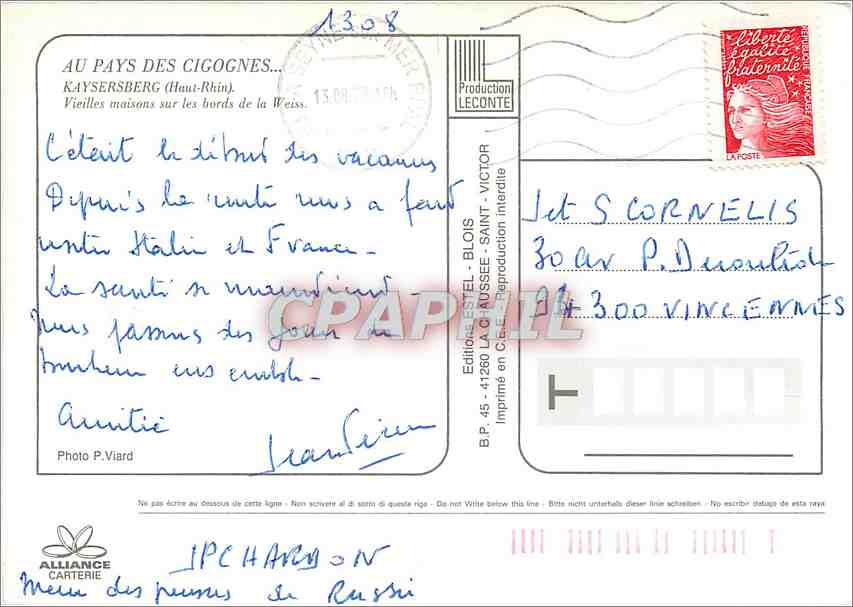 1308
LA SEYNE SUR MER
AU PAYS DES CIGOGNES...
KAYSERSBERG (Haut-Rhin).
Vieilles maisons sur les bords de la Weiss.
C'était le début des vacances
Depuis la route nous a fait
visiter Italie et France -
La santé se maintient -
Nous passons des jours de
bonheur ensemble -
Amitié
Jean Pierre
Photo P.Viard
Production
LECONTE
Editions ESTEL - BLOIS
B.P. 45 - 41260 LA CHAUSSEE - SAINT - VICTOR
Imprimé en C.E.E. Reproduction interdite
liberté
égalité
fraternité
RÉPUBLIQUE FRANÇAISE
LA POSTE
J et S CORNELIS
30 av P. Déroulède
94 300 VINCENNES
T
CPAPHIL
Ne pas écrire au dessous de cette ligne - Non scrivere al di sotto di questa riga - Do not Write below this line - Bitte nicht unterhalb dieser linie schreiben - No escribir debajo de esta raya
ALLIANCE
CARTERIE
JP CHARDON
des de Russie